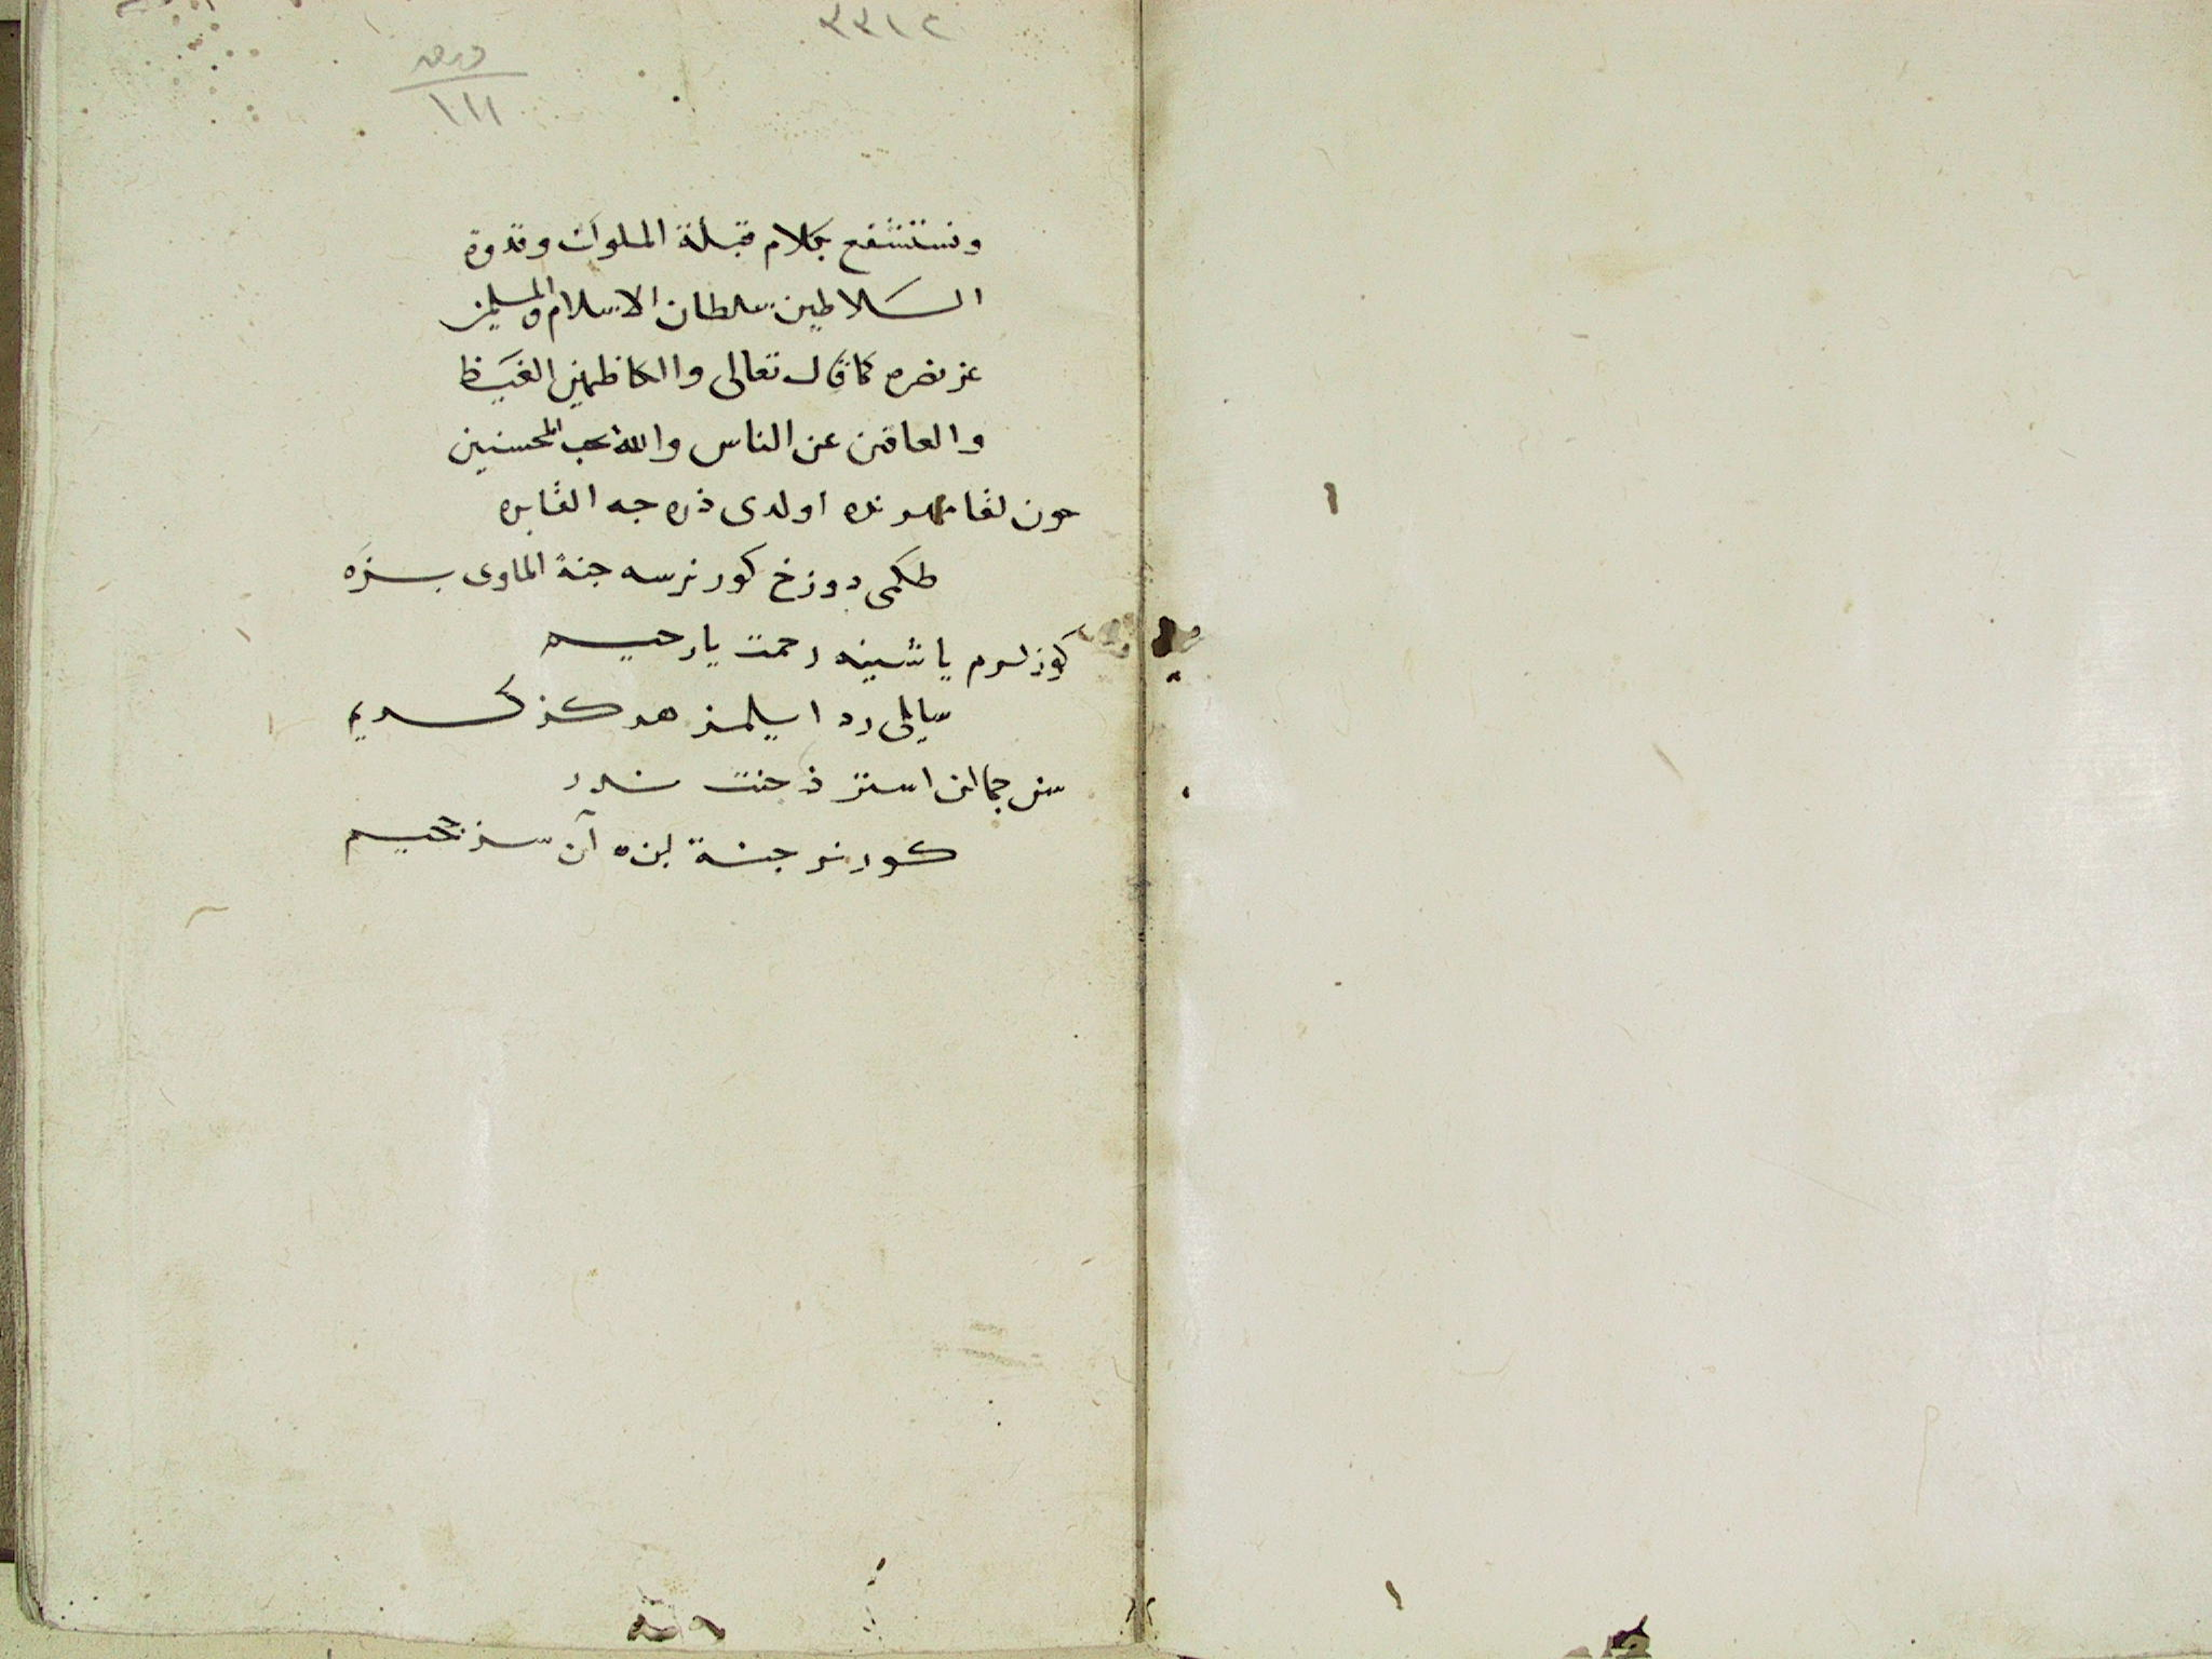 ٣٣١٢
١١١
ونستشفع بكلام قبلة الملوك وقدوة
السلاطين سلطان الاسلام والمسلمين
عز نصره كما قال تعالى والكاظمين الغيظ
والعافين عن الناس والله يحب المحسنين
چون لقا اولدى ذره جه
طكمى دوزخ كورنرسه جنة الماوى سزه
كوزلرم ياشينه رحمت يا رحيم
سايلى رد ايلمز هركز كريم
سن جمالن استر جنت
كورنر جنة بزه آن سز جحيم